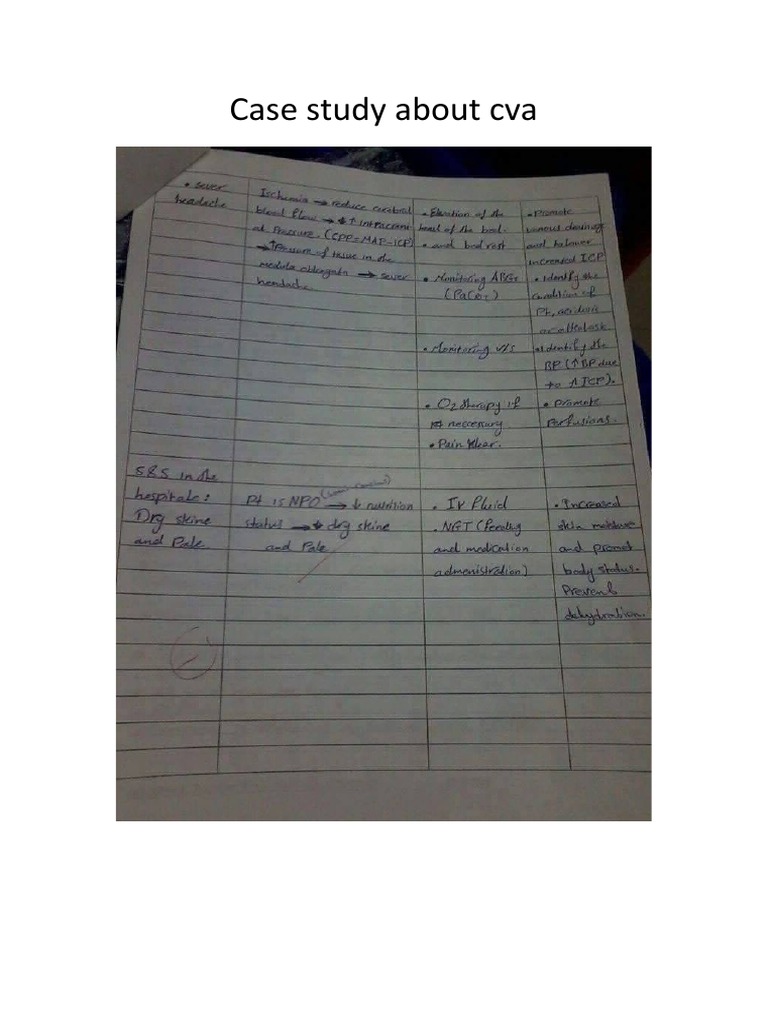 Case study about cva
• sever
headache
Ischemia → reduce cerebral
blood flow → ↑ intracrani
al Pressure. (CPP=MAP-ICP)
→ ↑ Pressure of tissue in the
medula oblongata → sever
headache
• Elevation of the
head of the bed.
• and bed rest
• Monitoring ABGs
(PaCo2)
• Monitoring v/s
• O2 therapy if
neccessary
• Pain
• Promote
venous drainag
and
increased ICP
• Identify the
condition of
Pt, acidosis
or
• Identify the
BP (↑BP due
to ↑ICP).
• Promote
Perfusions.
S&S in the
hospitale:
Dry skine
and Pale
Pt is NPO → ↓ nutrition
status → dry skine
and Pale
• IV Fluid
• NGT (Feeding
and medication
administration)
• Increased
skin moisture
and promot
body status.
Prevent
dehydration.